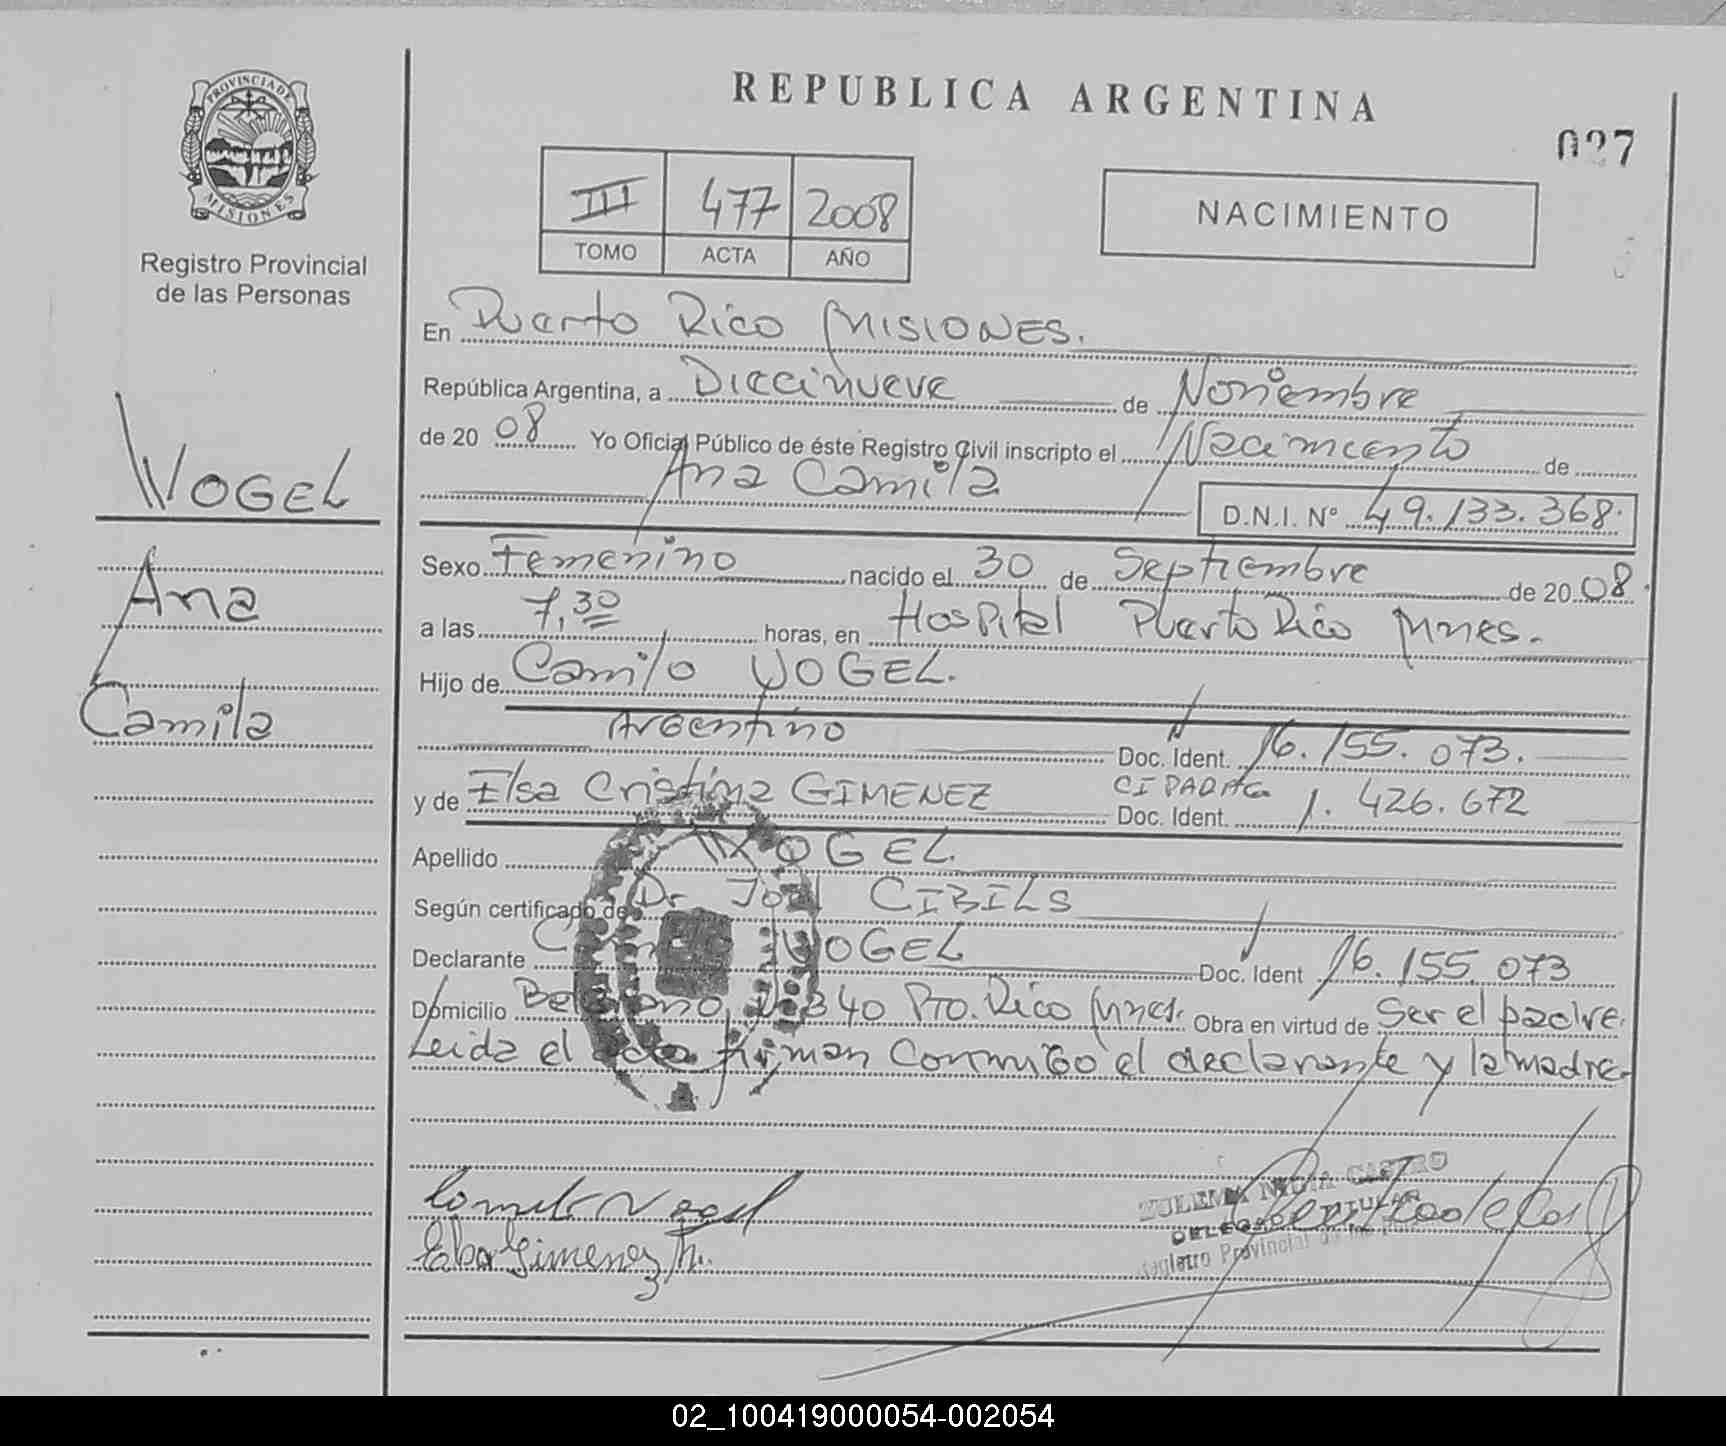 PROVINCIA DE
MISIONES
Registro Provincial
de las Personas
VOGEL
Ana
Camila
REPUBLICA ARGENTINA
027
III 477 2008
TOMO ACTA AÑO
NACIMIENTO
En Puerto Rico MISIONES.
República Argentina, a Diecinueve de Noviembre
de 2008 Yo Oficial Público de éste Registro Civil inscripto el Nacimiento de
Ana Camila
D.N.I. Nº 49.133.368.
Sexo Femenino nacido el 30 de Septiembre de 2008.
a las 7,30 horas, en Hospital Puerto Rico Mnes.
Hijo de Camilo VOGEL.
Argentino Doc. Ident. 16.155.073.
y de Elsa Cristina GIMENEZ CI PARAG Doc. Ident. 1.426.672
Apellido VOGEL.
Según certificado de Dr. Joel CIBILS
Declarante VOGEL Doc. Ident 16.155.073
Domicilio Belgrano 340 Pto. Rico Mnes. Obra en virtud de Ser el padre.
Leida el acta firman conmigo el declarante y la madre.
Camilo Vogel
Elsa Gimenez
ZULEMA NIDIA CASTRO
DELEGADO TITULAR
Registro Provincial de las
02_100419000054-002054